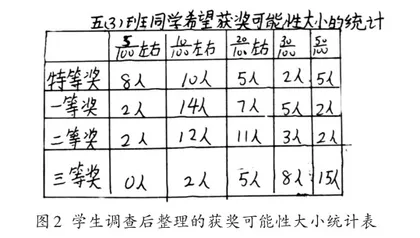 五(3)班同学希望获奖可能性大小的统计
5/100左右 10/100左右 20/100左右 30/100 50/100
特等奖 8人 10人 5人 2人 5人
一等奖 2人 14人 7人 5人 2人
二等奖 2人 12人 11人 3人 2人
三等奖 0人 2人 5人 8人 15人
图2 学生调查后整理的获奖可能性大小统计表